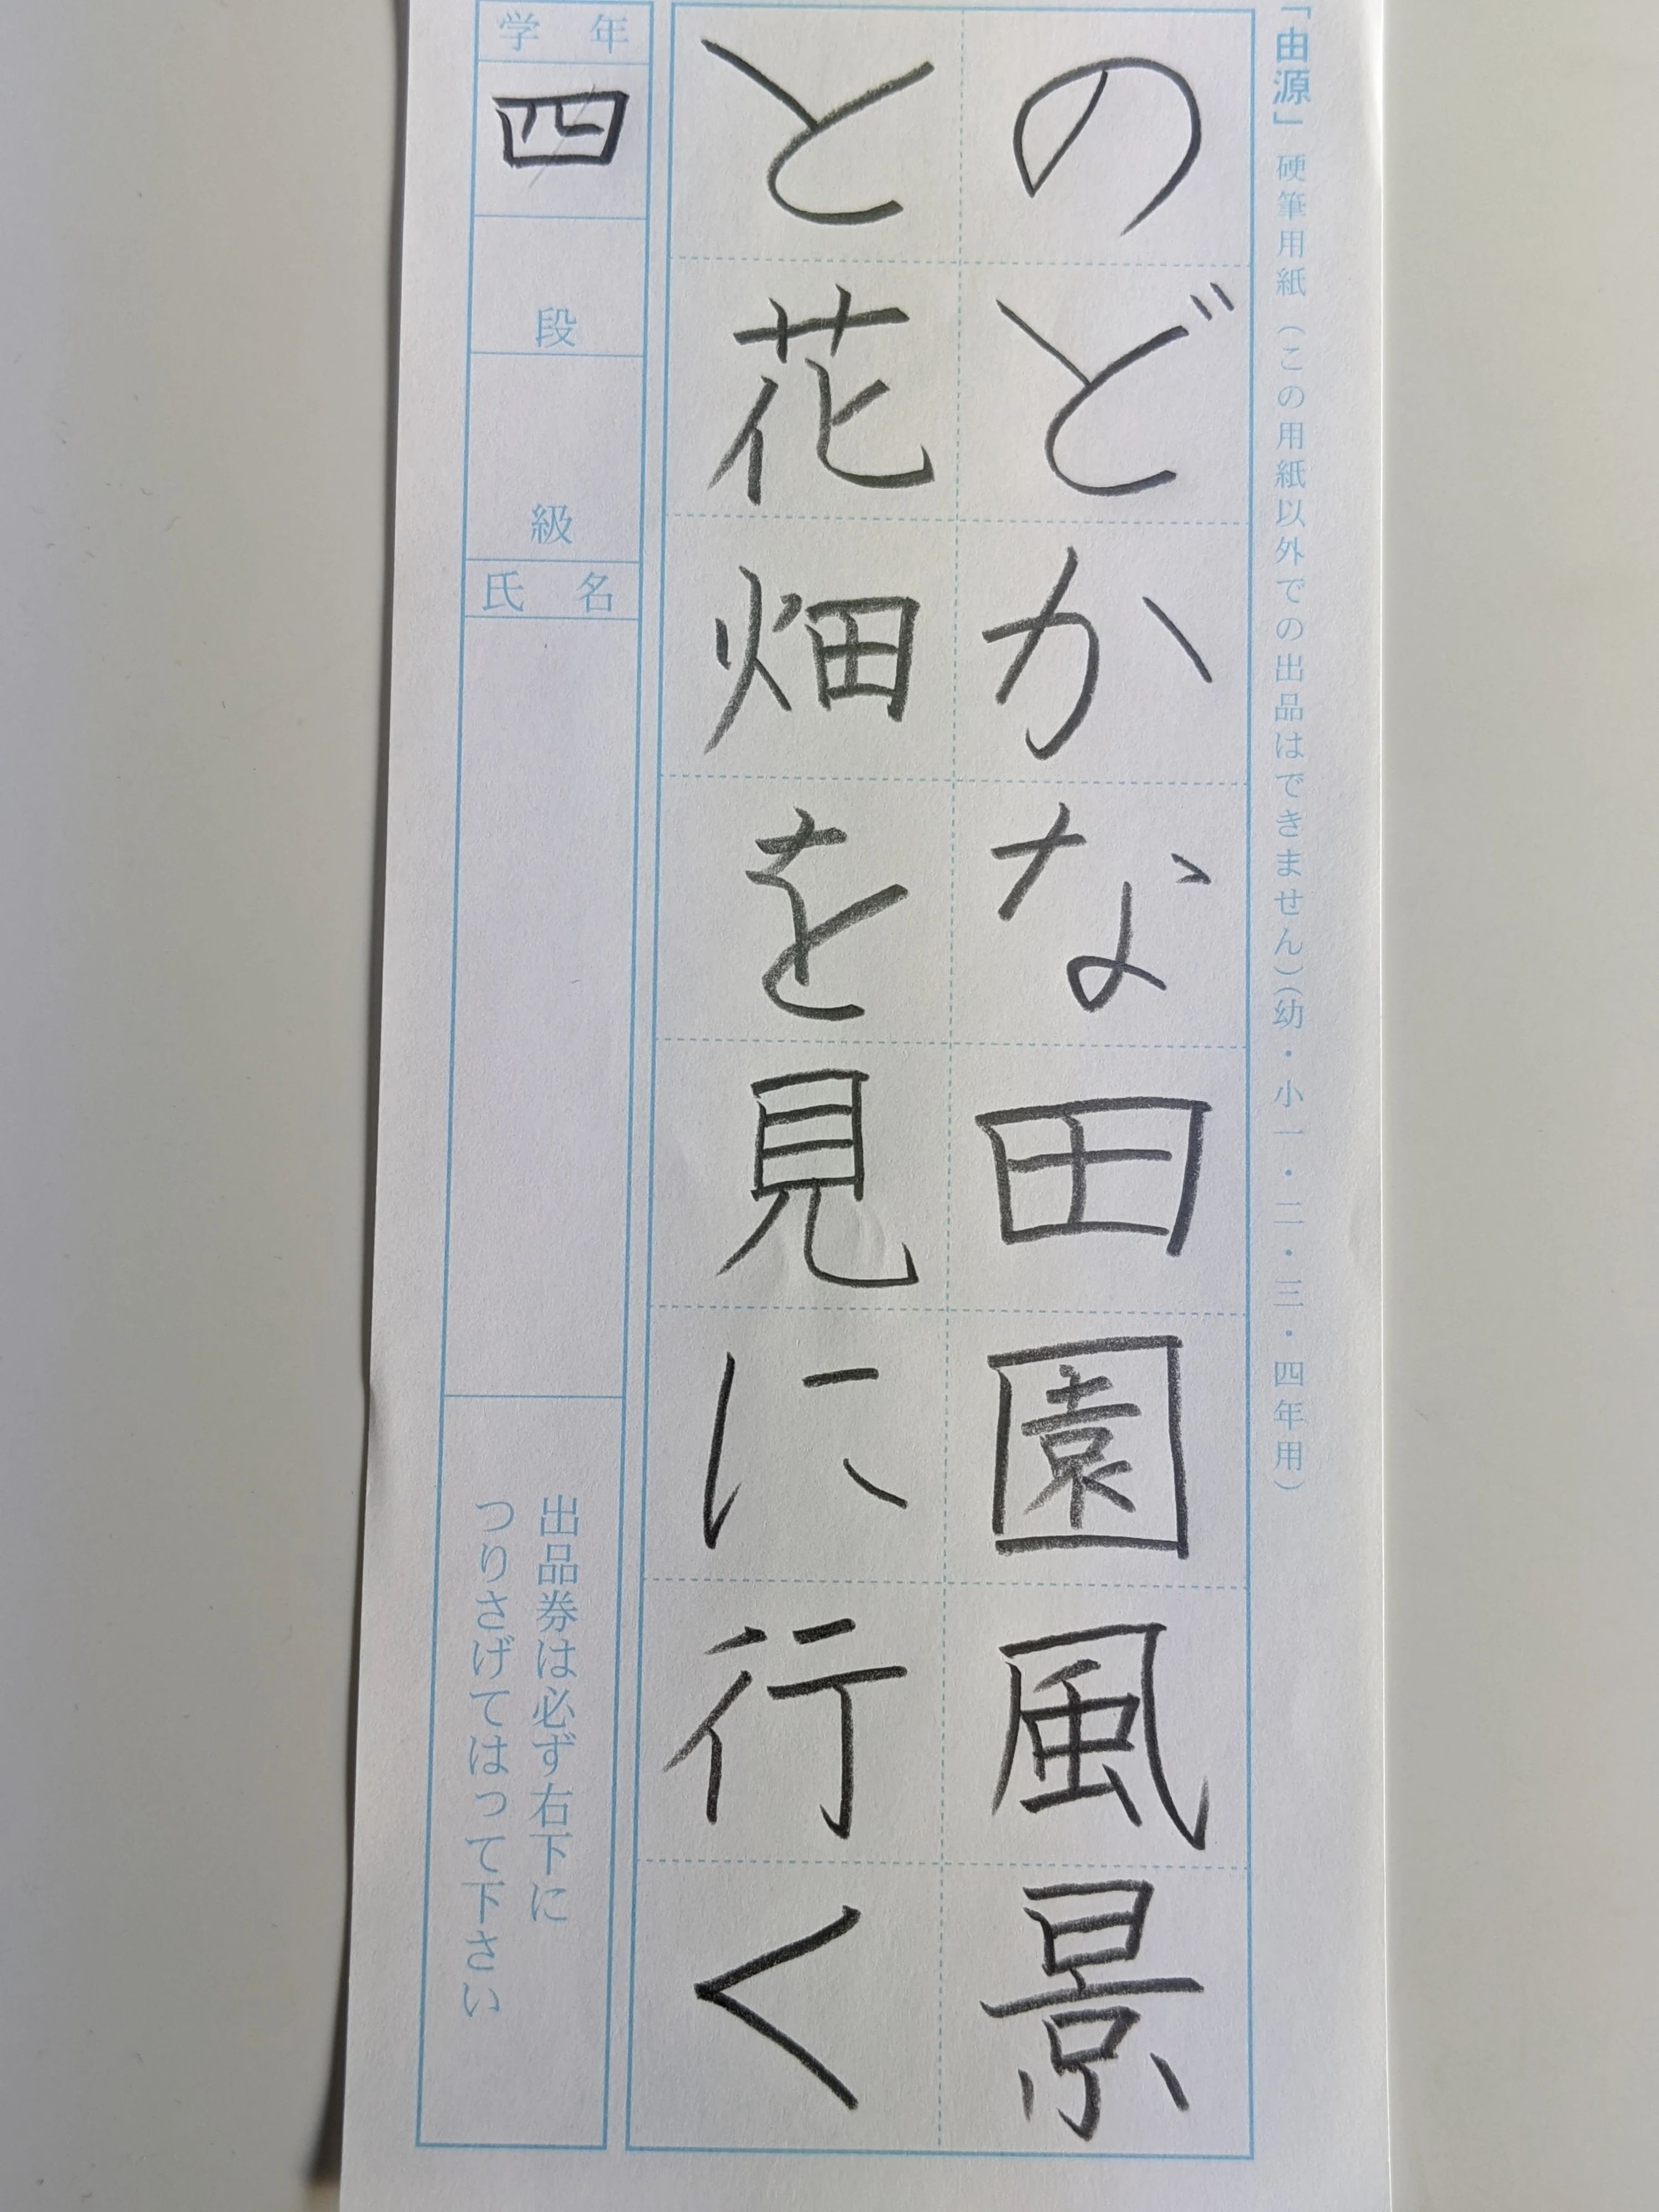 「由源」硬筆用紙（この用紙以外での出品はできません）（幼・小一・二・三・四年用）
のどかな田園風景
と花畑を見に行く
学年
四
段
級
氏名
出品券は必ず右下に
つりさげてはって下さい